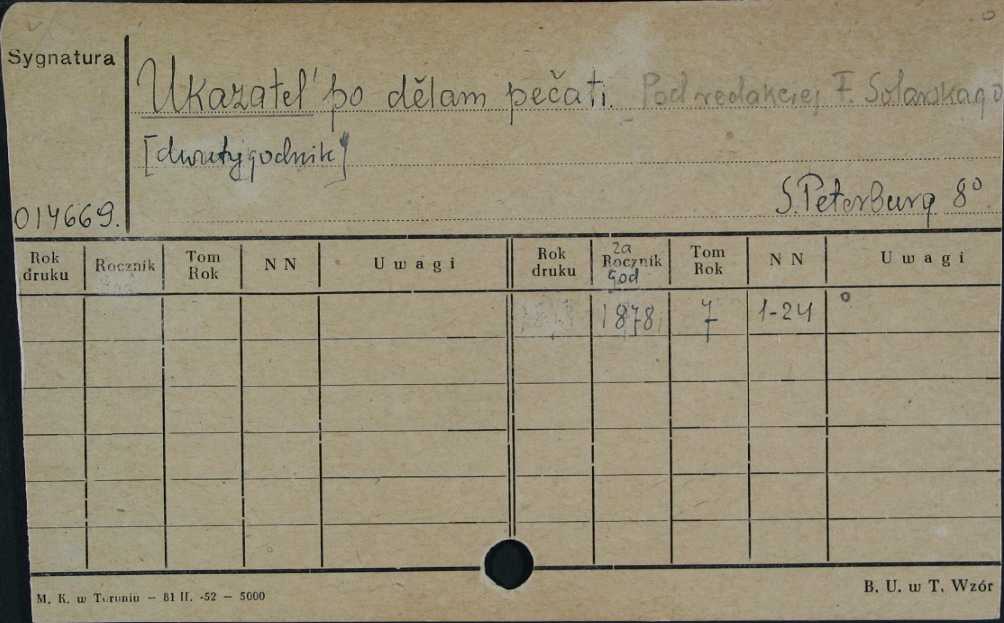 Sygnatura
Ukazatel' po dělam pečati. Pod redakciej F. Solarskago
[dwutygodnik]
014669. S. Peterburg 8°
Rok druku Rocznik Tom Rok N N Uwagi Rok druku za Rocznik god Tom Rok N N Uwagi
1878 7 1-24 °
M. K. w Toruniu — 81 II. -52 — 5000 B. U. w T. Wzór